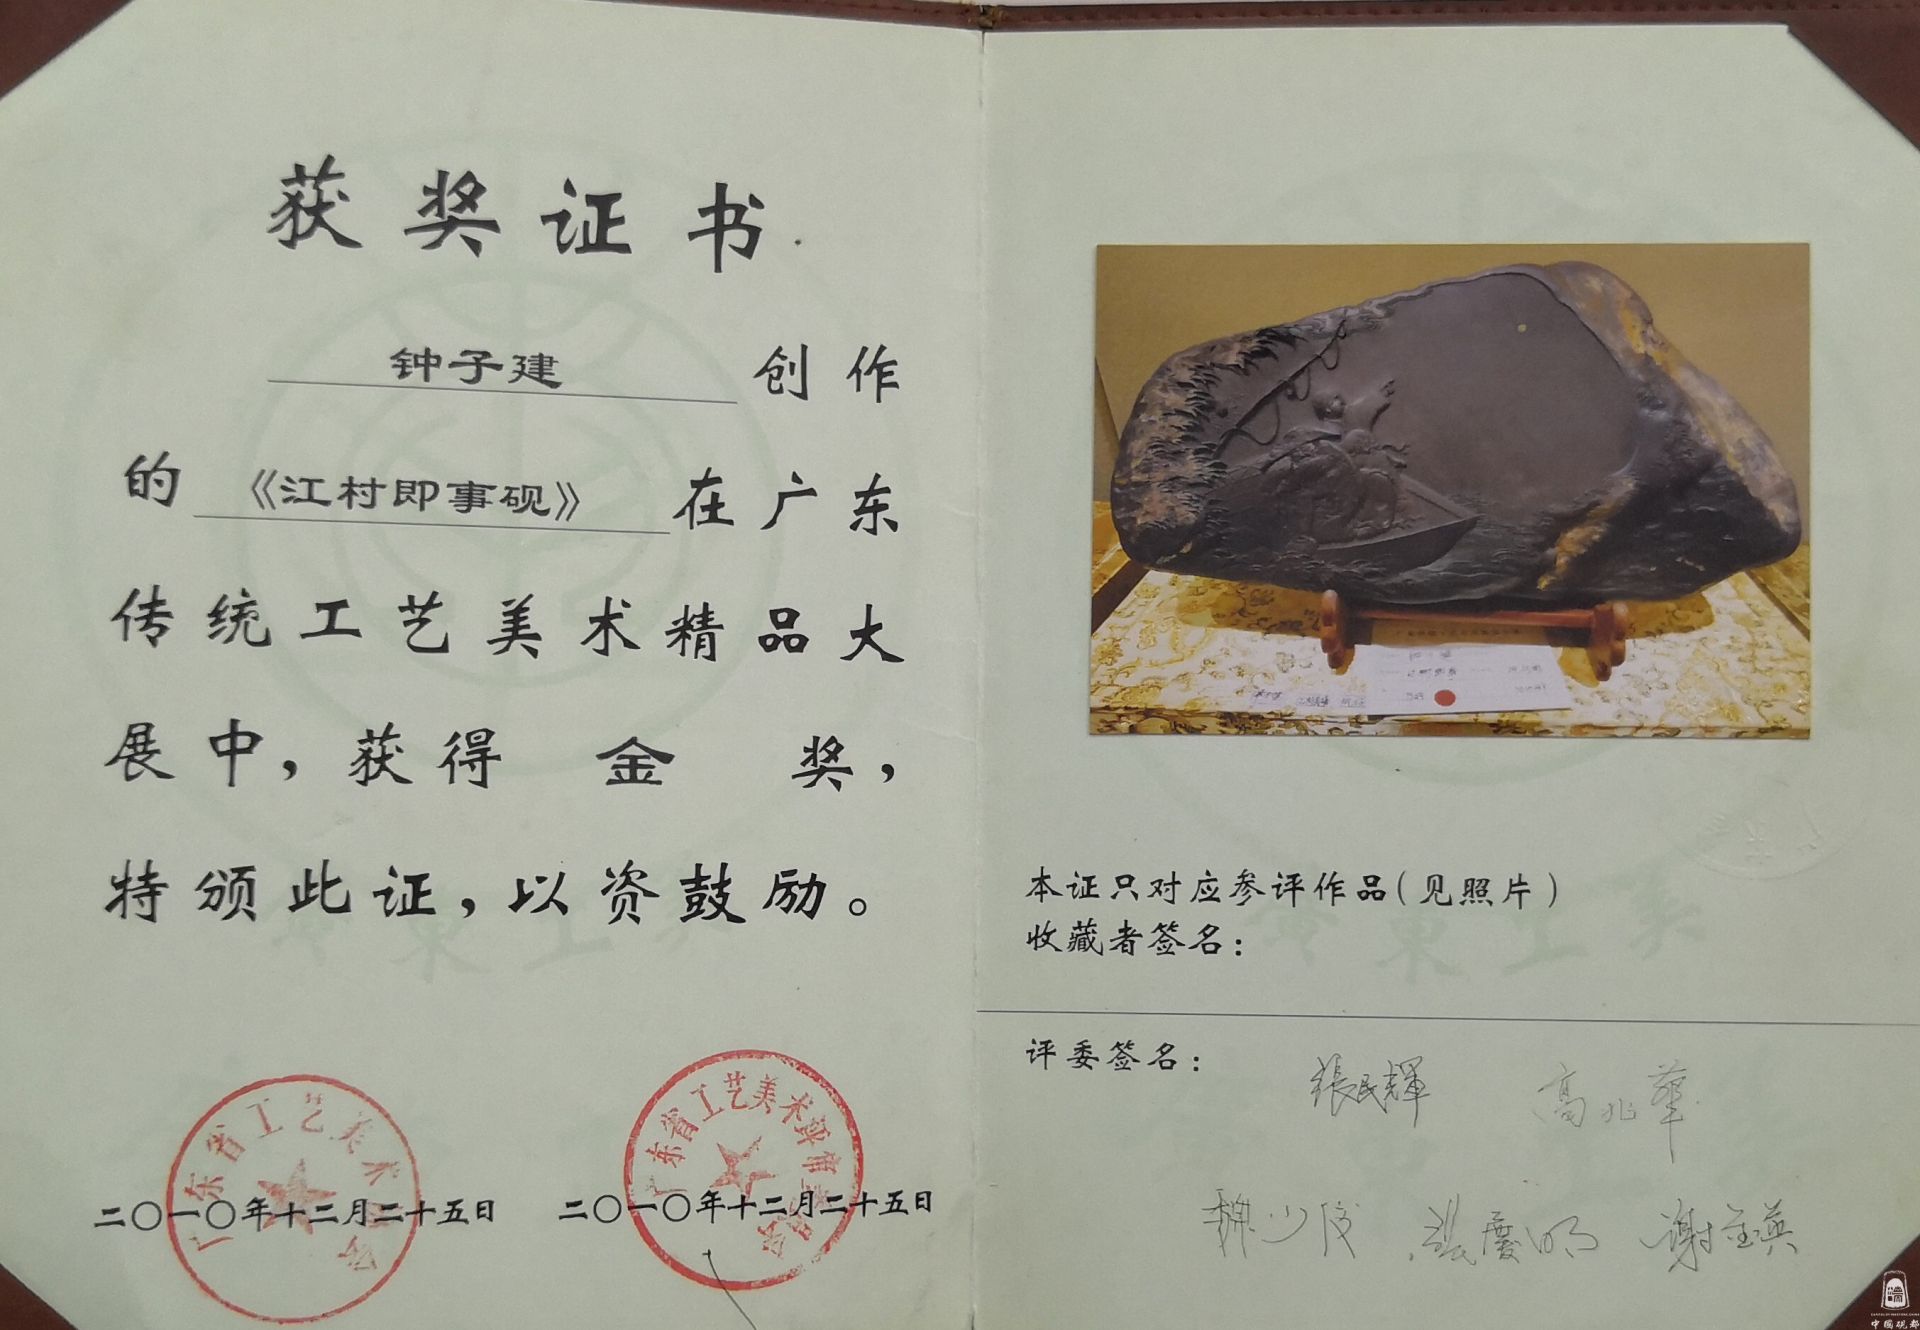 获奖证书
钟子建 创作
的 《江村即事砚》 在广东
传统工艺美术精品大
展中，获得 金 奖，
特颁此证，以资鼓励。
广东省工艺美术
会
二〇一〇年十二月二十五日
广东省工艺美术评审
二〇一〇年十二月二十五日
本证只对应参评作品(见照片)
收藏者签名：
评委签名：
張民輝
高兆華
張慶明
中國硯都